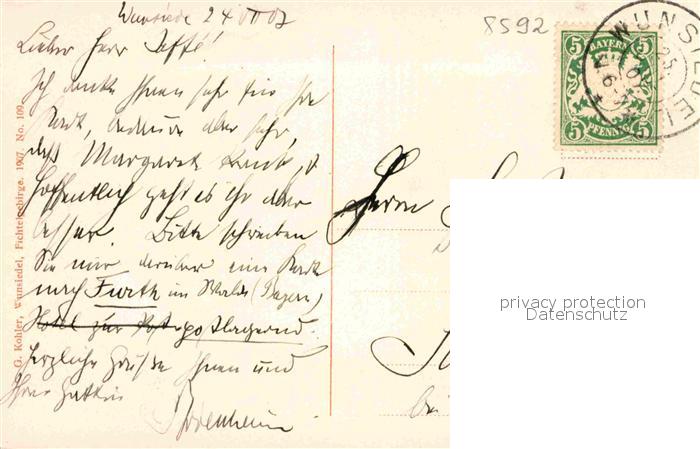 Wunsiedel 24 VII 07
8592
Lieber Herr Jaffé!
Ich danke Ihnen sehr für die
Karte, bedaure aber sehr,
daß Margaret krank,
hoffentlich geht es ihr aber
besser. Bitte schreiben
Sie mir darüber eine Karte
nach Furth im Walde (Bayern)
Hotel zur Post postlagernd.
Herzliche Grüße Ihnen und
Ihrer Gattin
G. Kohler, Wunsiedel, Fichtelgebirge. 1907. No. 109.
5 BAYERN 5
5 PFENNIG 5
WUNSIEDEL
Herrn
privacy protection
Datenschutz